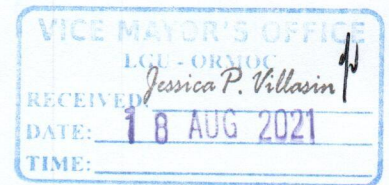 VICE MAYOR'S OFFICE
LGU - ORMOC
RECEIVED Jessica P. Villasin
DATE: 18 AUG 2021
TIME: